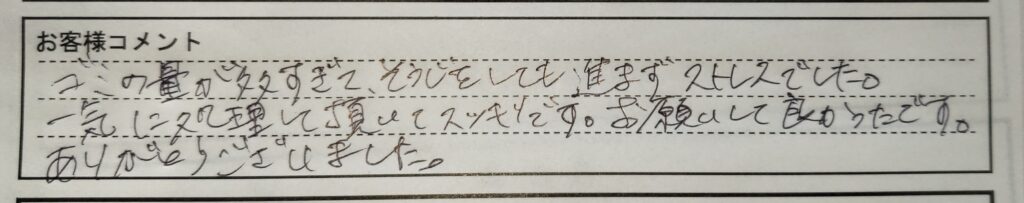 お客様コメント
ゴミの量が多すぎて、そうじをしても進まずストレスでした。
一気に処理して頂いてスッキリです。お願いして良かったです。
ありがとうございました。